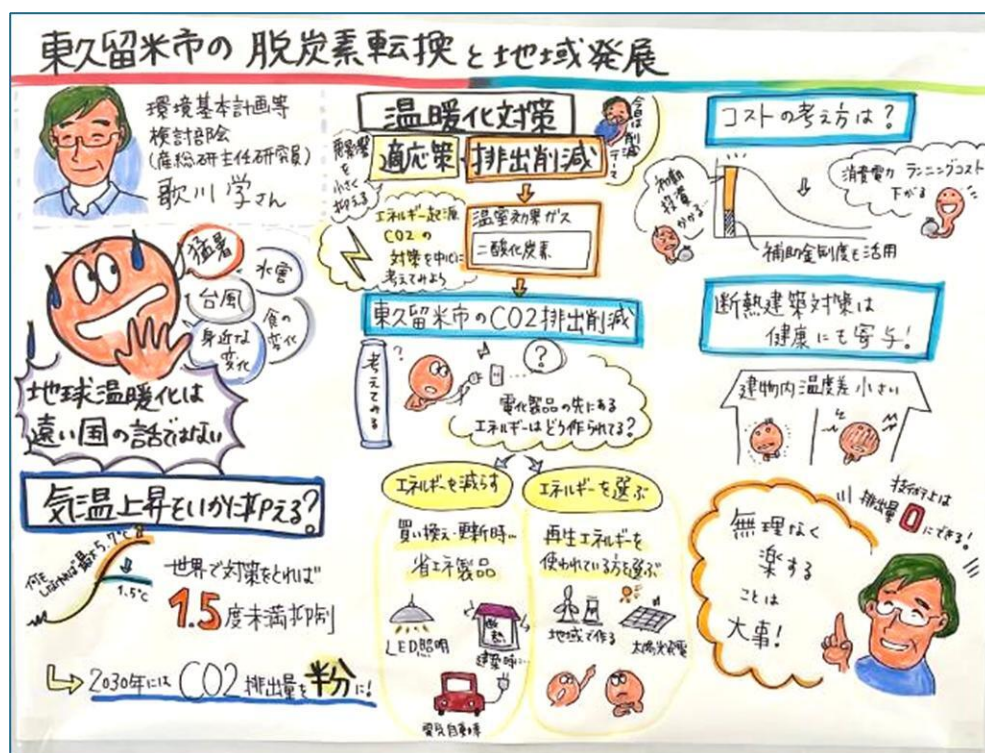 東久留米市の脱炭素転換と地域発展
環境基本計画等
検討部会
(産総研主任研究員)
歌川 学さん
猛暑
水害
台風
食の変化
身近な変化
地球温暖化は
遠い国の話ではない
気温上昇をいかに抑える?
何もしなければ最大5.7℃
1.5℃
世界で対策をとれば
1.5度未満抑制
2030年には CO2排出量を半分に!
温暖化対策
今日は削減
適応策
排出削減
影響を
小さく
抑える
エネルギー起源
CO2の
対策を中心に
考えてみよう
温室効果ガス
二酸化炭素
東久留米市のCO2排出削減
考えてみる
?
?
電化製品の先にある
エネルギーはどう作られてる?
エネルギーを減らす
買い換え・更新時…
省エネ製品
LED照明
断熱
建築時に…
電気自動車
エネルギーを選ぶ
再生エネルギーを
使われている方を選ぶ
地域で作る
太陽光発電
コストの考え方は?
初期
投資
かかる…
消費電力 ランニングコスト
下がる
補助金制度も活用
断熱建築対策は
健康にも寄与!
建物内温度差小さい
無理なく
楽する
ことは
大事!
技術上は
排出量0にできる!